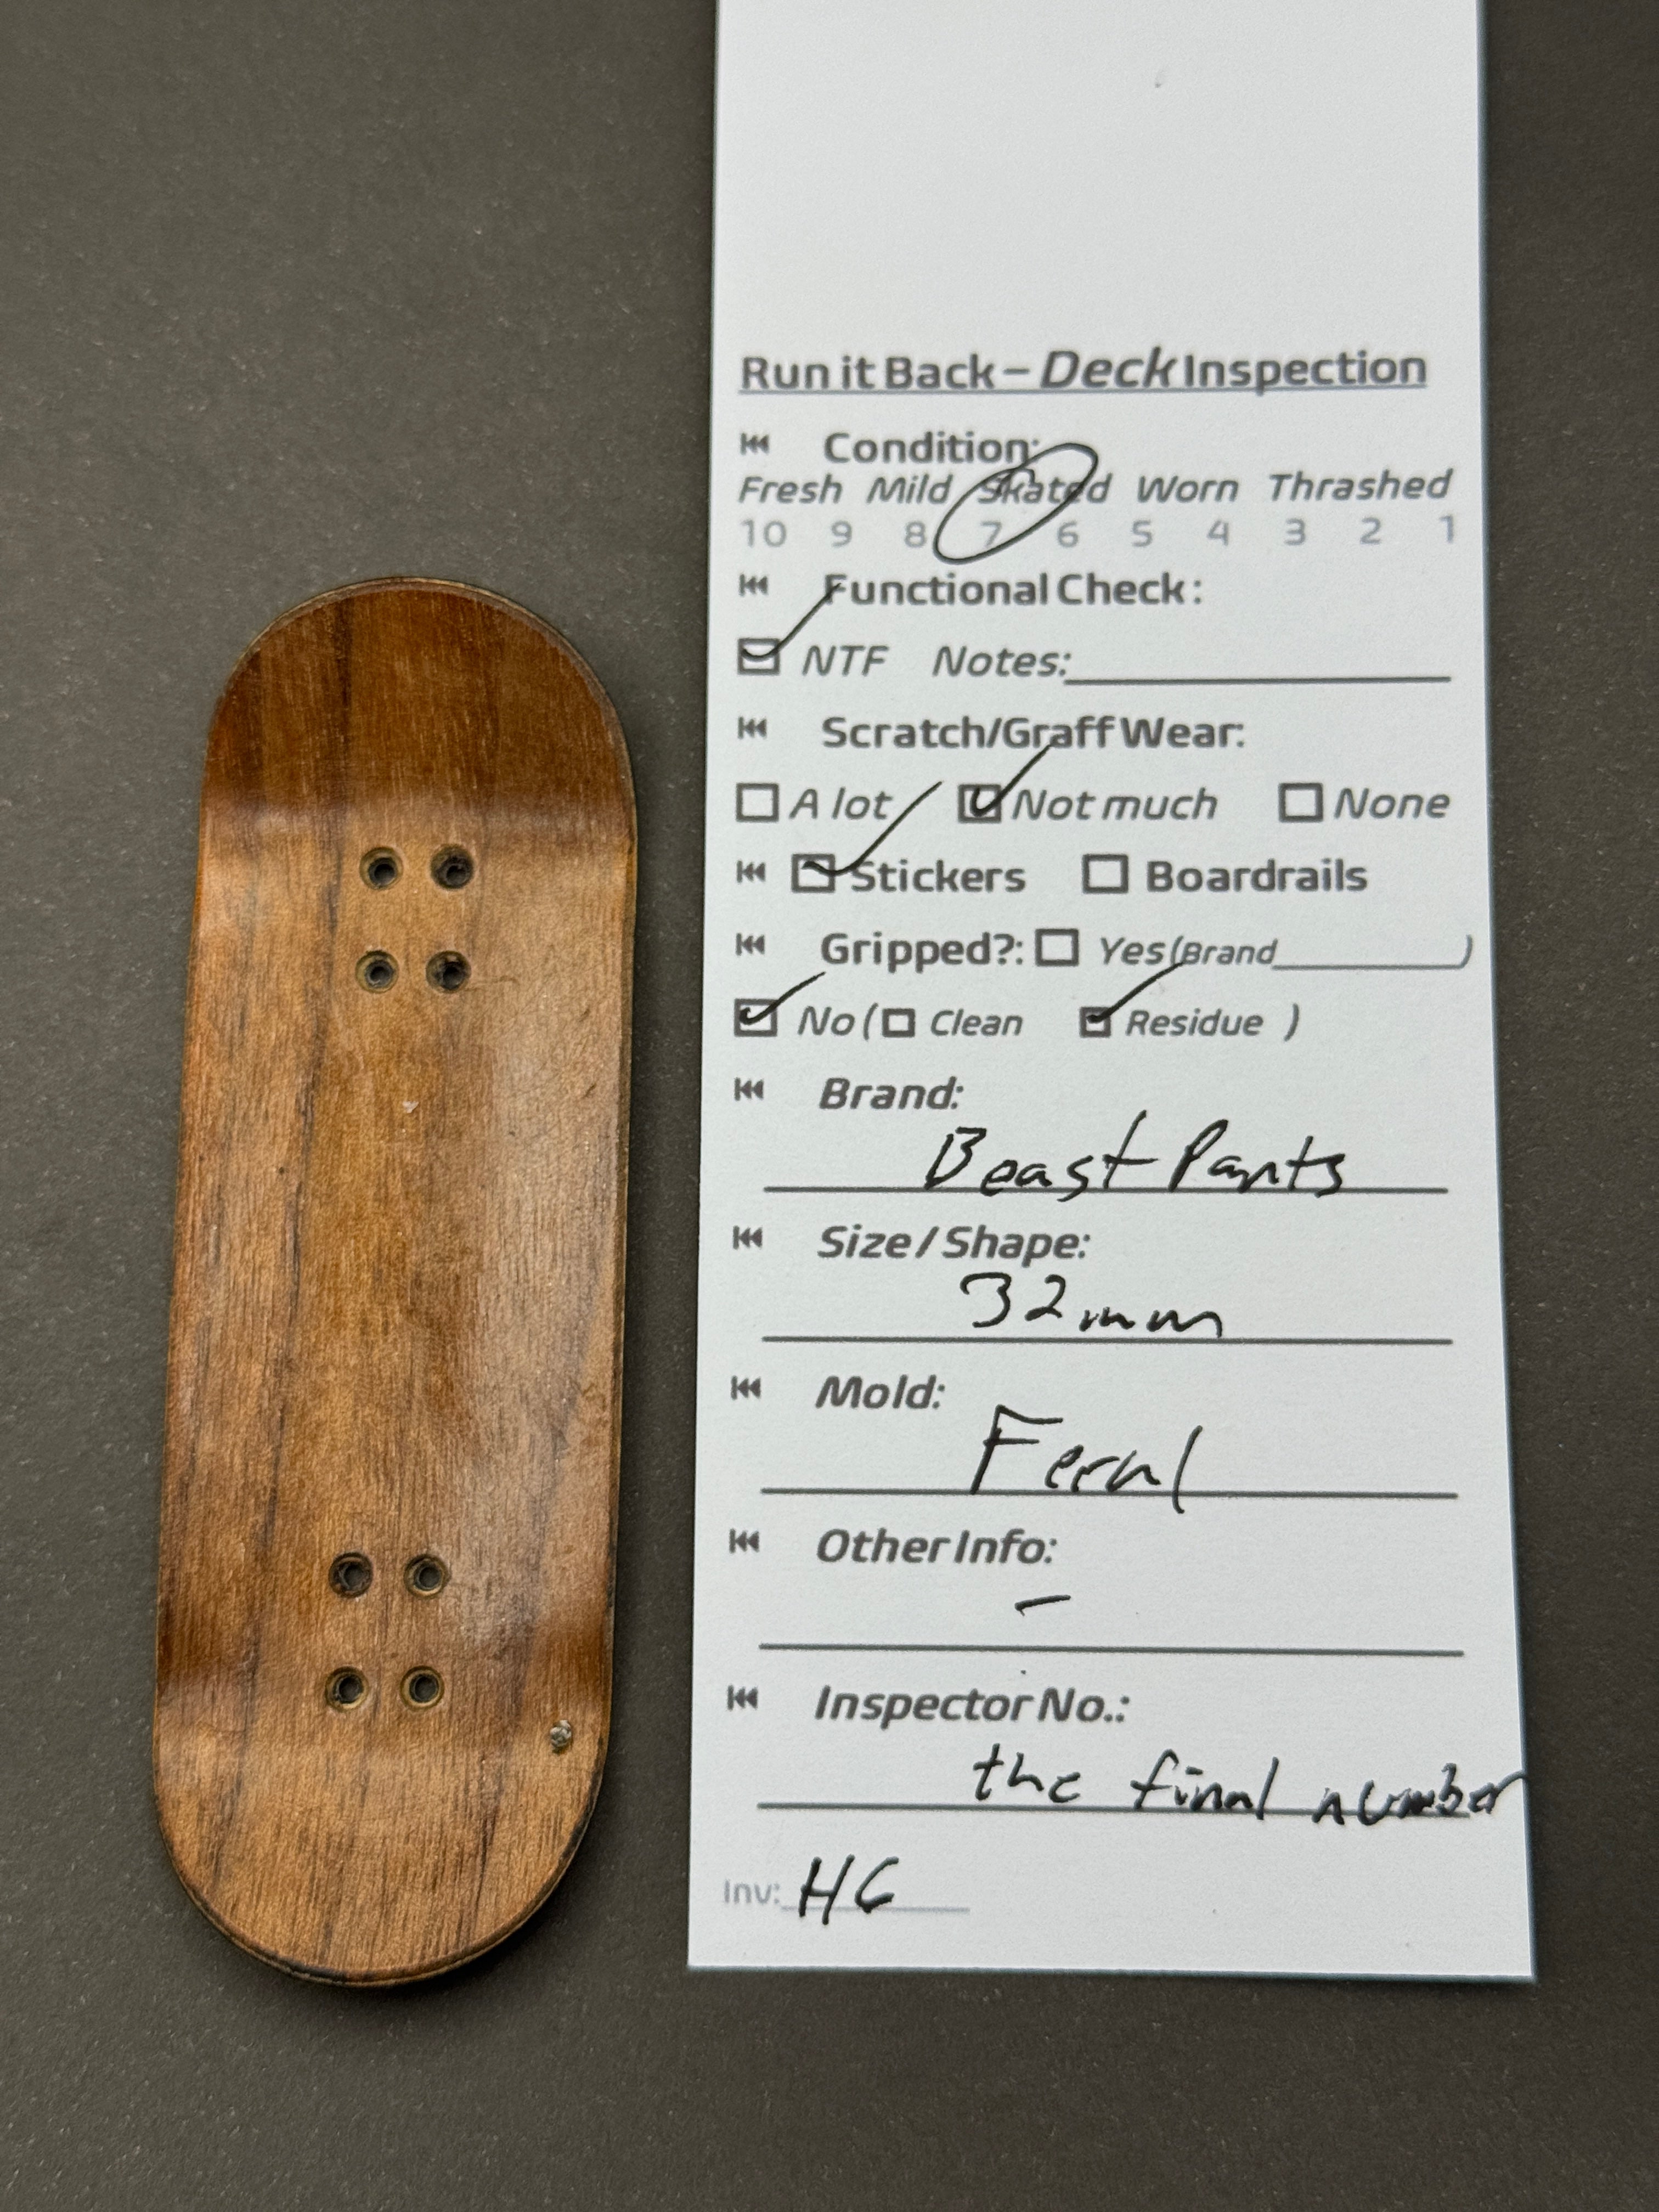 Run it Back – Deck Inspection
Condition:
Fresh Mild Skated Worn Thrashed
10 9 8 7 6 5 4 3 2 1
Functional Check:
NTF Notes:
Scratch/Graff Wear:
A lot Not much None
Stickers Boardrails
Gripped?: Yes (Brand )
No ( Clean Residue )
Brand:
Beast Pants
Size / Shape:
32mm
Mold:
Feral
Other Info:
–
Inspector No.:
the final number
Inv: H6